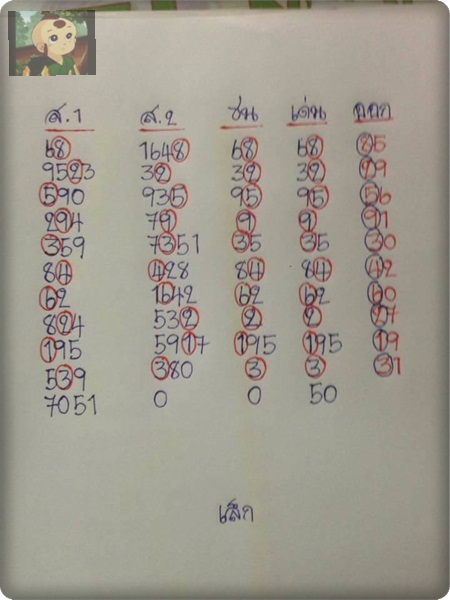 ส.1 ส.2 ชน เด่น ออก
68 1648 68 68 85
9523 32 32 32 29
590 935 95 95 56
294 79 9 9 91
359 7351 35 35 30
84 428 84 84 42
62 1642 62 62 60
824 532 2 2 27
195 5917 195 195 19
539 380 3 3 31
7051 0 0 50
เส็ก